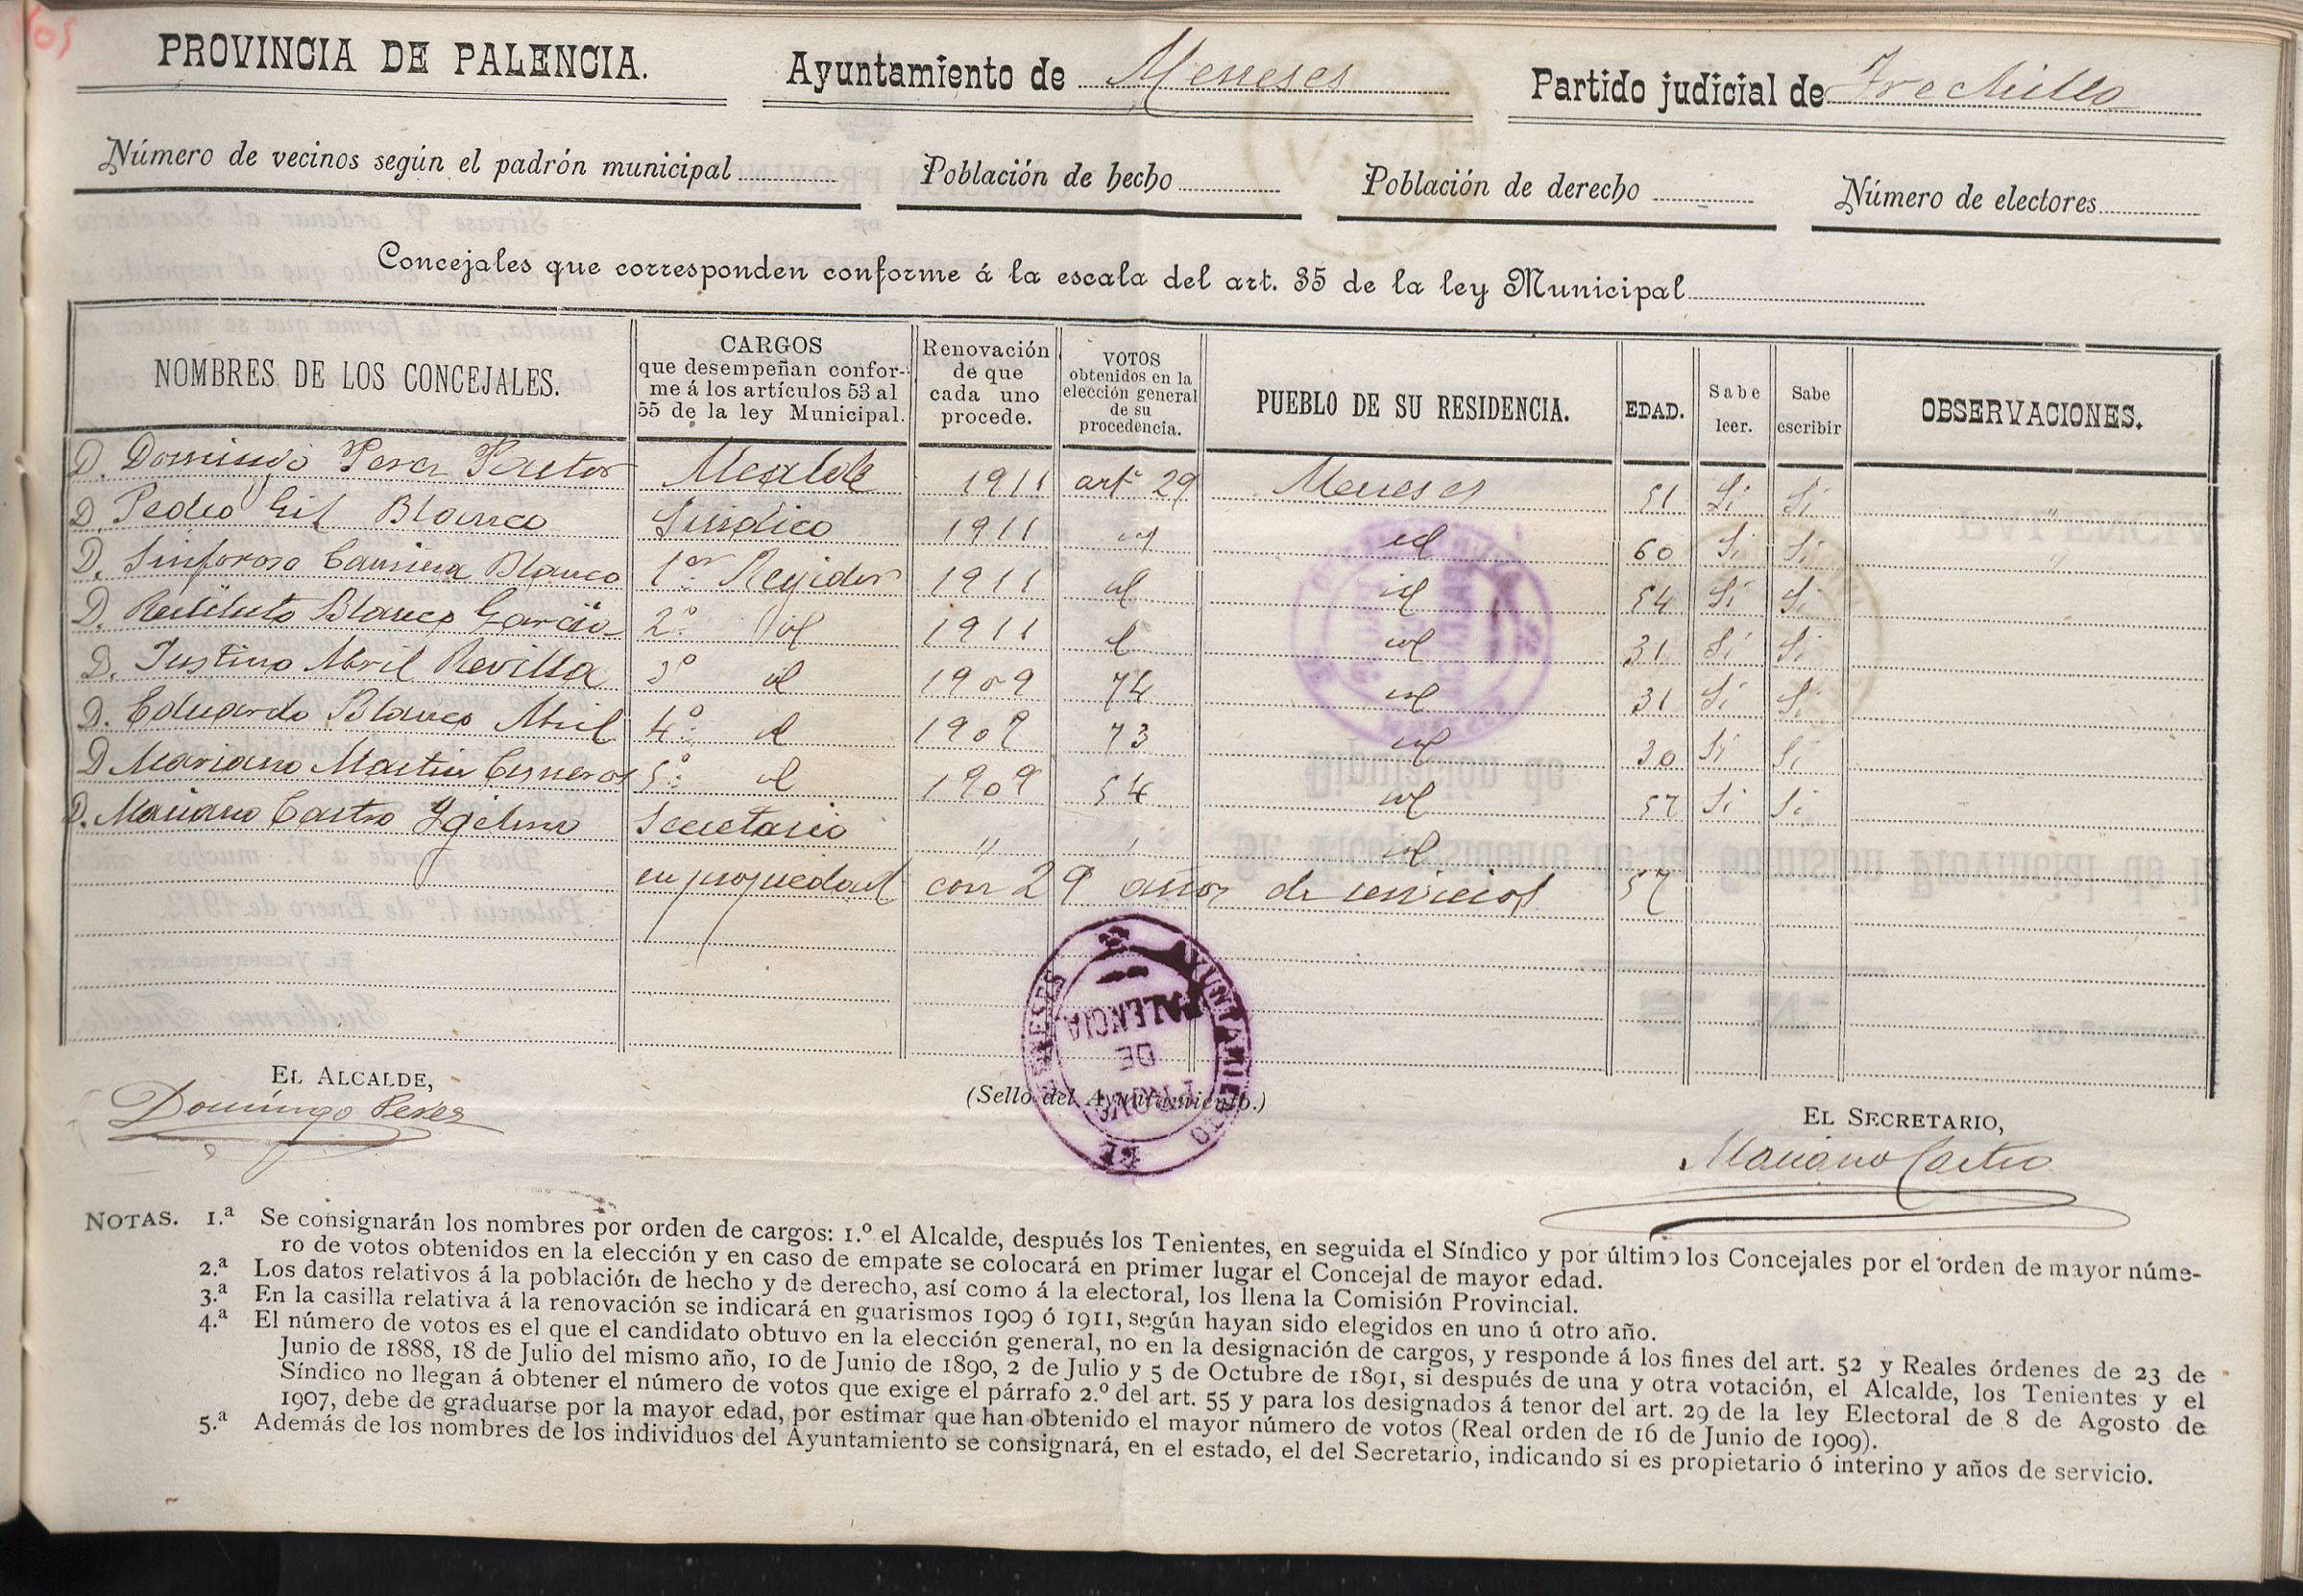 PROVINCIA DE PALENCIA. Ayuntamiento de Meneses Partido judicial de Frechilla
Número de vecinos según el padrón municipal Población de hecho Población de derecho Número de electores
Concejales que corresponden conforme á la escala del art. 35 de la ley Municipal
NOMBRES DE LOS CONCEJALES.
CARGOS
que desempeñan confor-
me á los artículos 53 al
55 de la ley Municipal.
Renovación
de que
cada uno
procede.
VOTOS
obtenidos en la
elección general
de su
procedencia.
PUEBLO DE SU RESIDENCIA.
EDAD.
Sabe
leer.
Sabe
escribir
OBSERVACIONES.
D. Domingo Perez Pastor Alcalde 1911 artº 29 Meneses 51 Si Si "
D. Pedro Gil Blanco Sindico 1911 id id 60 Si Si "
D. Sinforoso Blanco 1er Regidor 1911 id id 54 Si Si
D. Restituto Blanco Garcia 2º id 1911 id id 31 Si Si
D. Justino Abril Revilla 3º id 1909 74 id 31 Si Si
D. Eduardo Blanco Abril 4º id 1909 73 id 30 Si Si
D. Mariano Martin Cisneros 5º id 1909 54 id 57 Si Si
D. Mariano Castro Secretario " " id
en propiedad con 29 años de servicios 57
EL ALCALDE,
Domingo Perez
(Sello del Ayuntamiento.)
AYUNTAMIENTO DE MENESES
PROVª DE PALENCIA
EL SECRETARIO,
Mariano Castro
NOTAS. 1.ª Se consignarán los nombres por orden de cargos: 1.º el Alcalde, después los Tenientes, en seguida el Síndico y por último los Concejales por el orden de mayor núme-
ro de votos obtenidos en la elección y en caso de empate se colocará en primer lugar el Concejal de mayor edad.
2.ª Los datos relativos á la población de hecho y de derecho, así como á la electoral, los llena la Comisión Provincial.
3.ª En la casilla relativa á la renovación se indicará en guarismos 1909 ó 1911, según hayan sido elegidos en uno ú otro año.
4.ª El número de votos es el que el candidato obtuvo en la elección general, no en la designación de cargos, y responde á los fines del art. 52 y Reales órdenes de 23 de
Junio de 1888, 18 de Julio del mismo año, 10 de Junio de 1890, 2 de Julio y 5 de Octubre de 1891, si después de una y otra votación, el Alcalde, los Tenientes y el
Síndico no llegan á obtener el número de votos que exige el párrafo 2.º del art. 55 y para los designados á tenor del art. 29 de la ley Electoral de 8 de Agosto de
1907, debe de graduarse por la mayor edad, por estimar que han obtenido el mayor número de votos (Real orden de 16 de Junio de 1909).
5.ª Además de los nombres de los individuos del Ayuntamiento se consignará, en el estado, el del Secretario, indicando si es propietario ó interino y años de servicio.